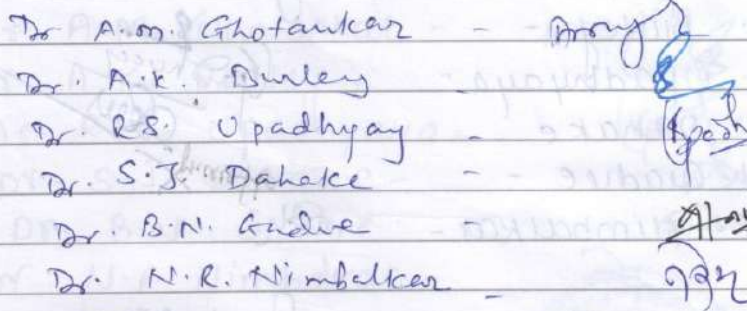 Dr A.M. Ghotankar - -
Dr. A.K. Burley
Dr. R.S. Upadhyay -
Dr. S.J. Dahake
Dr. B.N. Gadve -
Dr. N.R. Nimbalkar -